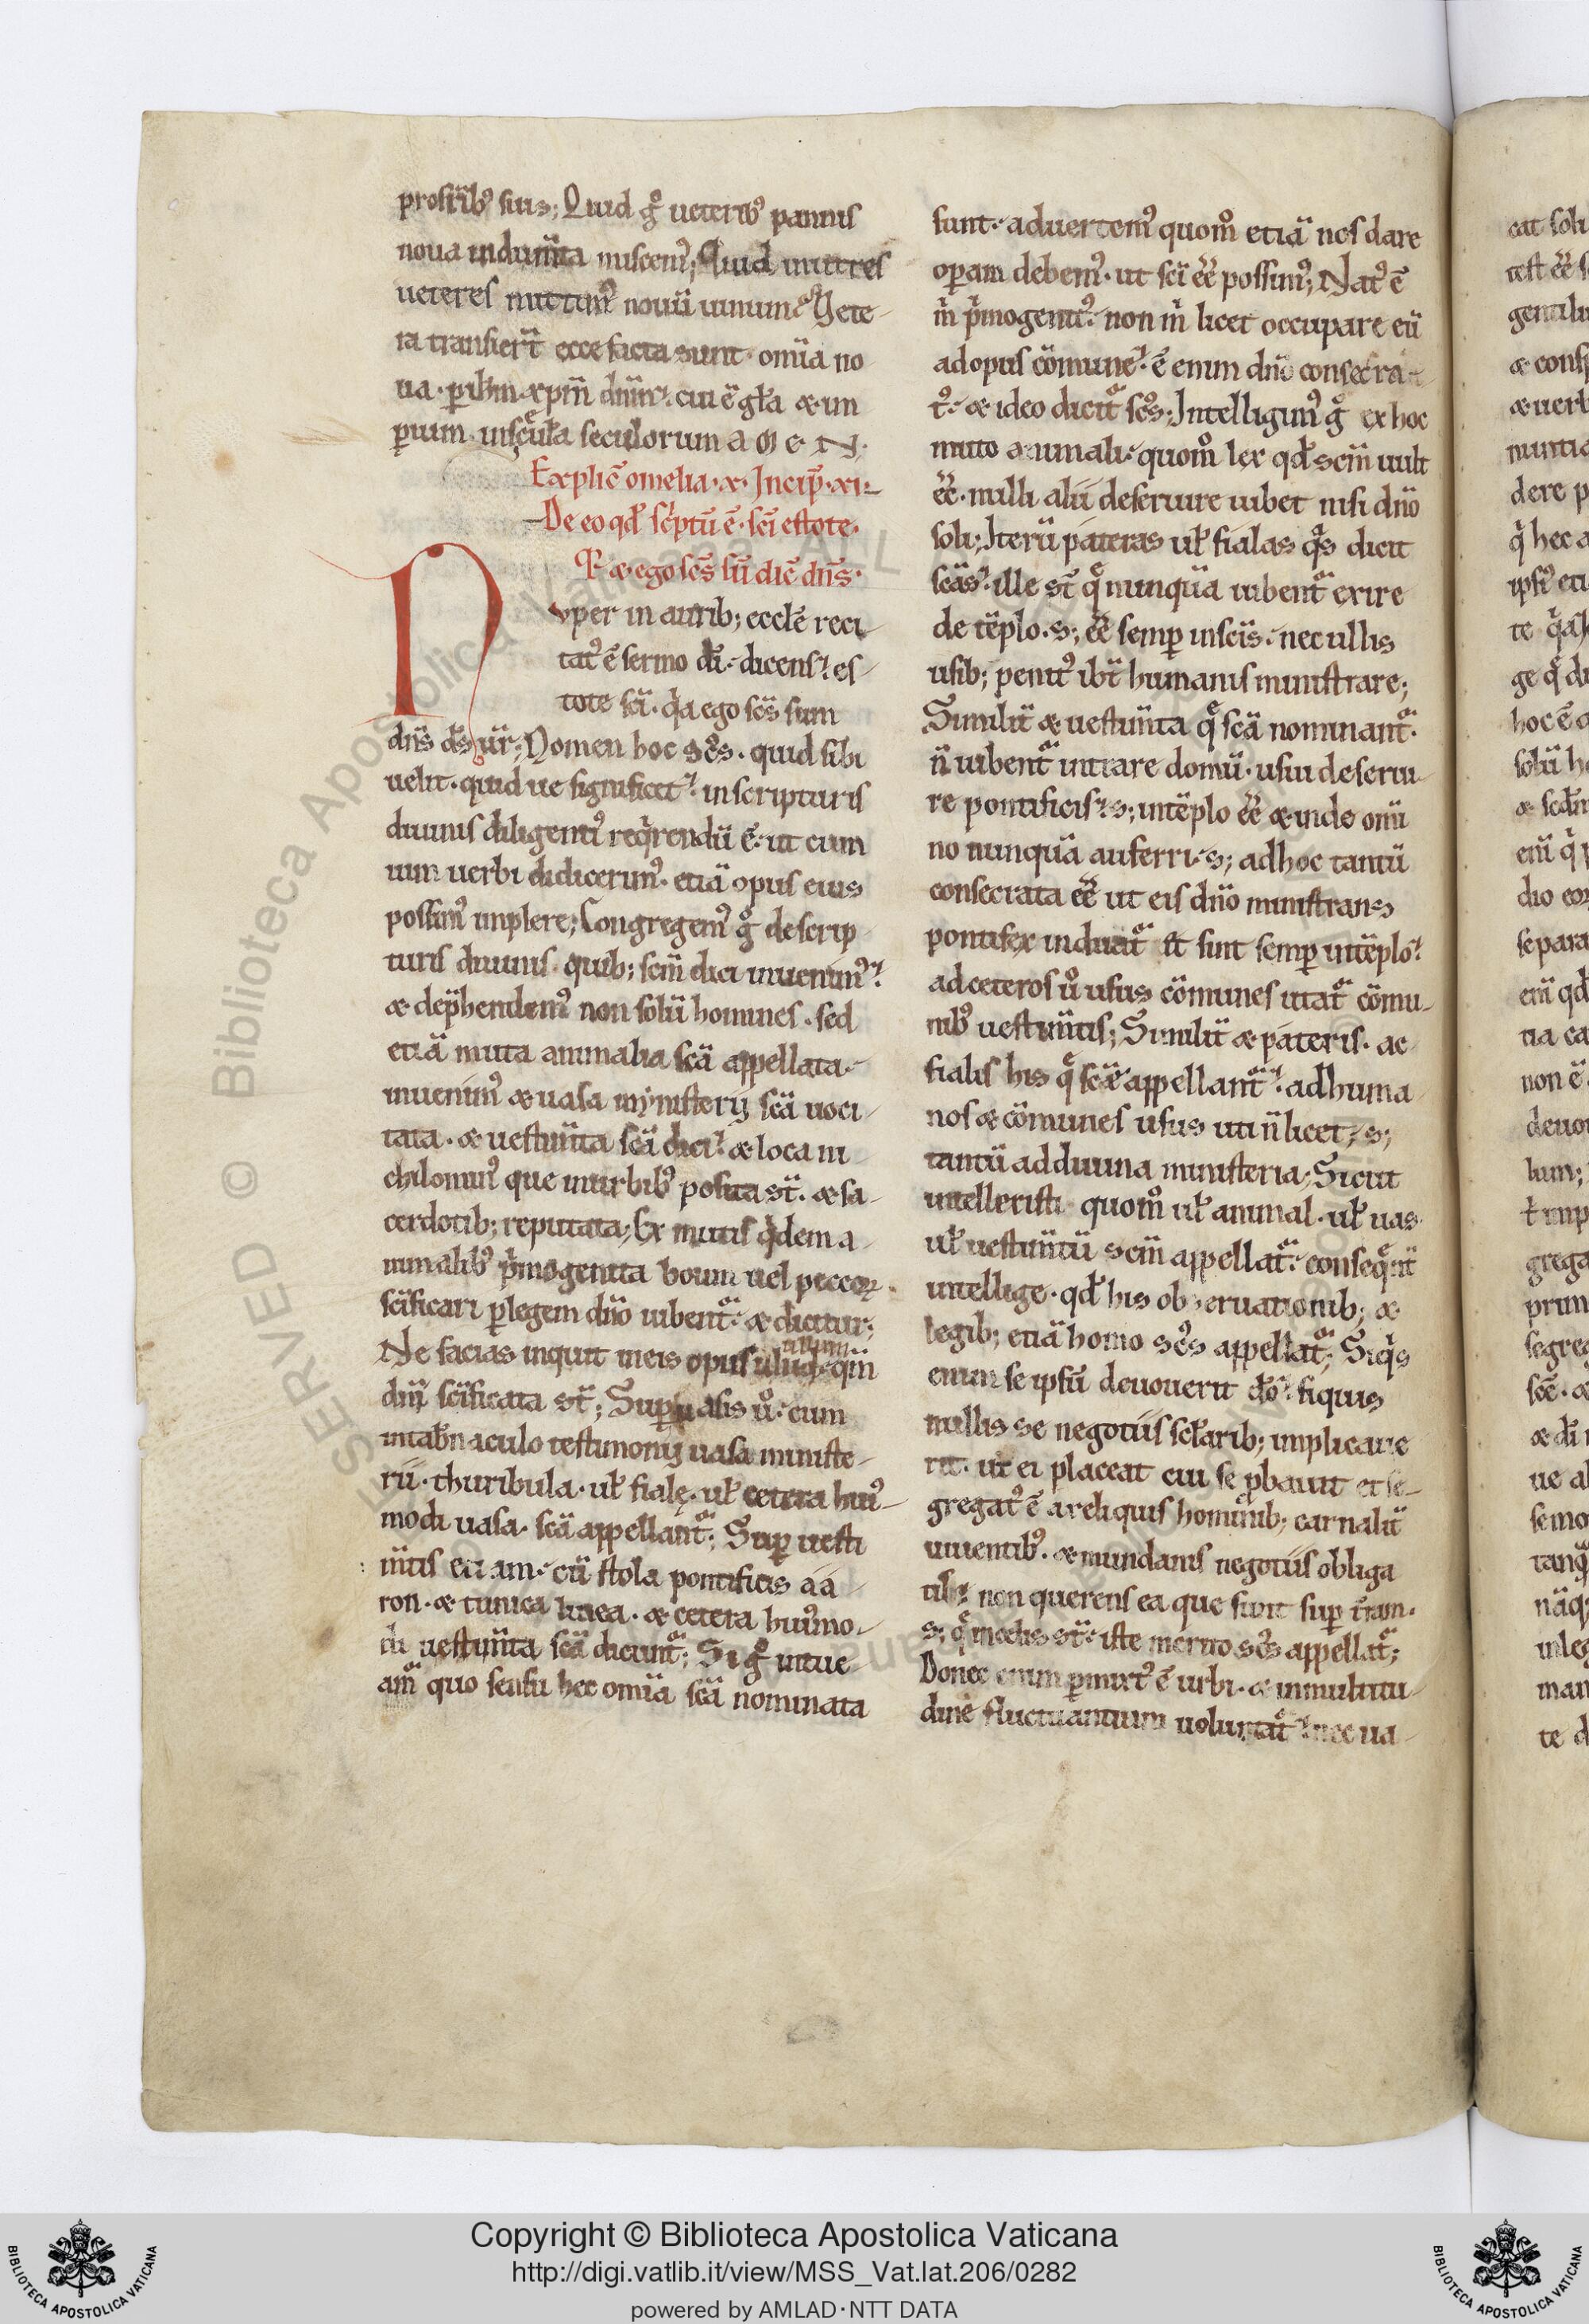 prostrib᷒ suis; Quid g̊ ueterib᷒ pannis
noua indum̄ta miscem᷒; Quid in utres
ueteres mittim᷒ nouū uinum? Vete-
ra transiert̄ ecce facta sunt omīa no
ua. p ihm xpm̄ dnm̄. cui ē gl̄a & im
perium in scl̄a seculorum a m e N.
Explic̄ omelia .x. Incip̄ .xi.
De eo qd̄ scriptū ē. sci estote.
Q & ego scs̄ sū dic̄ dns̄.
Nvper in aurib; eccl̄e reci-
tat᷒ ē sermo dī. dicens. es-
tote scī. qa ego scs̄ sum
dns̄ ds̄ ur̄; Nomen hoc sc̄s. quid sibi
uelit. quid ue significet. in scripturis
diuinis diligenti᷒ reqrendū ē. ut cum
uim uerbi didicerim᷒. etiā opus eius
possim᷒ implere; Congregem᷒ g̊ de scrip
turis diuinis quib; scm̄ dici inuenim᷒.
& dep̄hendem᷒ non solū homines. sed
etiā muta animalia scā appellata.
inuenim᷒ & uasa mynisterij scā uoci-
tata. & uestim̄ta scā dici. & loca ni-
chilomin᷒ que in urbib᷒ posita st̄. & sa-
cerdotib; reputata; Ex mutis qdem a-
nimalib᷒ pmogenita boum uel peccor̄
scīficari p legem dn̄o iubent᷑. & dicitur;
Ne facias inquit in eis opus ullum qm̄
dn̄i scīficata st̄; Sup uasis ů. cum
in tab̄naculo testimonij uasa ministe-
rii. thuribula. ul̄ fialę. ul̄ cetera hui᷒-
modi uasa. scā appellant᷑; Sup uesti
m̄tis etiam. cū stola pontificis aa-
ron. & tunica linea. & cetera hui᷒mo-
di uestim̄ta scā dicunt᷑; Si g̊ intue-
am᷑ quo sensu hec omīa scā nominata
sunt. aduertem᷒ quom̊ etiā nos dare
operam debem᷒. ut scī eē possim᷒; Nat᷒ ē
m̄ pmogenit᷒. non m̄ licet occupare eū
ad opus cōmune. ē enim dn̄o consecra-
t᷒. & ideo dicit᷑ sc̄s; Intelligim᷒ g̊ ex hoc
muto animali. quom̊ lex qd̄ scm̄ uult
eē. nulli alii deseruire iubet nisi dn̄o
soli; Iterū pateras ul̄ fialas qs dicit
scās. ille st̄ q nunquā iubent᷑ exire
de tēplo. s; eē semp in scīs. nec ullis
usib; penit᷒ ibt̄ humanis ministrare;
Similit̄ & uestim̄ta q scā nominant᷑.
n̄ iubent᷑ intrare domū. usui deserui-
re pontificis. s; in tēplo eē & inde omī
no nunquā auferri. s; ad hoc tantū
consecrata eē ut eis dn̄o ministrans
pontifex induat᷑ & sint semp in tēplo.
ad ceteros ů usus cōmunes utat᷑ cōmu-
nib᷒ uestim̄tis; Similit̄ & pateris. ac
fialis his q scē appellant᷑. ad huma-
nos & cōmunes usus uti n̄ licet. s;
tantū ad diuina ministeria; Sicut
intellexisti quom̊ ul̄ animal. ul̄ uas
ul̄ uestim̄tū scm̄ appellat᷑. conseqnt̄
intellige. qd̄ his obseruationib; &
legib; etiā homo sc̄s appellat᷑; Siqs
enim se ipsū deuouerit dō. siquis
nullis se negotiis scl̄arib; implicaue
rit. ut ei placeat cui se pbauit et se-
gregat᷒ ē a reliquis hominib; carnalit̄
uiuentib᷒. & mundanis negotiis obliga
tis. non querens ea que sunt sup tr̄am.
s; q in celis st̄. iste merito sc̄s appellat᷑;
Donec enim pmixt᷒ ē urbi. & in multitu-
dine fluctuantium uolutat᷑. nec ua-
Copyright © Biblioteca Apostolica Vaticana
http://digi.vatlib.it/view/MSS_Vat.lat.206/0282
powered by AMLAD·NTT DATA
BIBLIOTECA APOSTOLICA VATICANA
BIBLIOTECA APOSTOLICA VATICANA